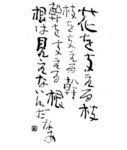 花を支える枝
枝を支える幹
幹を支える根
根は見えねえんだなあ